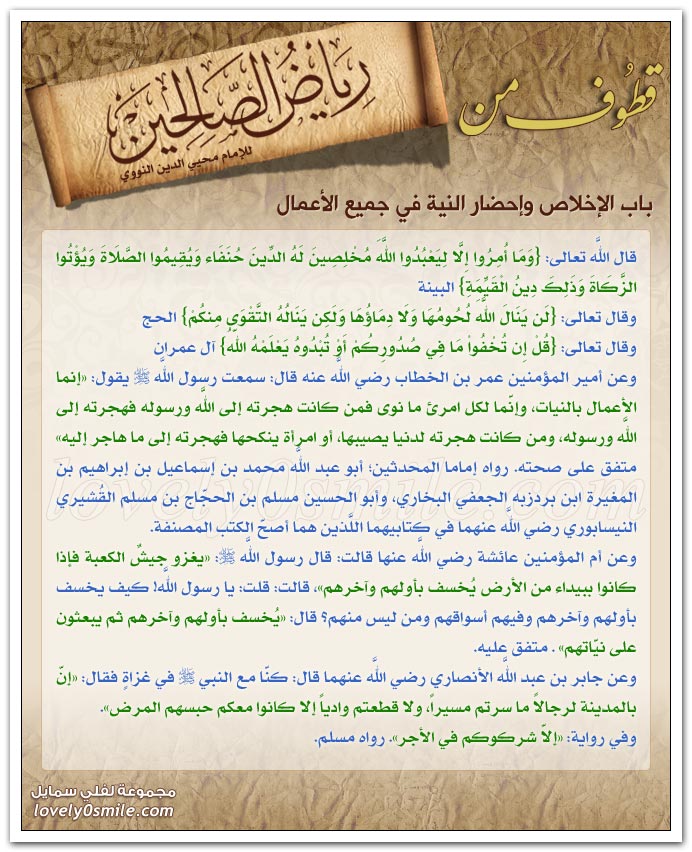 قطوف من
رياض الصالحين
للإمام محيي الدين النووي
باب الإخلاص وإحضار النية في جميع الأعمال
قال اللَّه تعالى: {وَمَا أُمِرُوا إِلَّا لِيَعْبُدُوا اللَّهَ مُخْلِصِينَ لَهُ الدِّينَ حُنَفَاء وَيُقِيمُوا الصَّلَاةَ وَيُؤْتُوا
الزَّكَاةَ وَذَلِكَ دِينُ الْقَيِّمَةِ} البينة
وقال تعالى: {لَن يَنَالَ اللَّه لُحُومُهَا وَلَا دِمَاؤُهَا وَلَكِن يَنَالُهُ التَّقْوَى مِنكُمْ} الحج
وقال تعالى: {قُلْ إِن تُخْفُواْ مَا فِي صُدُورِكُمْ أَوْ تُبْدُوهُ يَعْلَمْهُ اللَّه} آل عمران
وعن أمير المؤمنين عمر بن الخطاب رضي اللَّه عنه قال: سمعت رسول اللَّه ﷺ يقول: «إنما
الأعمال بالنيات، وإنّما لكل امرئ ما نوى فمن كانت هجرته إلى اللَّه ورسوله فهجرته إلى
اللَّه ورسوله، ومن كانت هجرته لدنيا يصيبها، أو امرأة ينكحها فهجرته إلى ما هاجر إليه»
متفق على صحته. رواه إماما المحدثين؛ أبو عبد اللَّه محمد بن إسماعيل بن إبراهيم بن
المغيرة ابن بردزبه الجعفي البخاري، وأبو الحسين مسلم بن الحجّاج بن مسلم القُشيري
النيسابوري رضي اللَّه عنهما في كتابيهما اللَّذين هما أصحّ الكتب المصنفة.
وعن أم المؤمنين عائشة رضي اللَّه عنها قالت: قال رسول اللَّه ﷺ: «يغزو جيشٌ الكعبة فإذا
كانوا ببيداء من الأرض يُخسف بأولهم وآخرهم»، قالت: قلت: يا رسول اللَّه! كيف يخسف
بأولهم وآخرهم وفيهم أسواقهم ومن ليس منهم؟ قال: «يُخسف بأولهم وآخرهم ثم يبعثون
على نيّاتهم» . متفق عليه.
وعن جابر بن عبد اللَّه الأنصاري رضي اللَّه عنهما قال: كنّا مع النبي ﷺ في غزاةٍ فقال: «إنّ
بالمدينة لرجالاً ما سرتم مسيراً، ولا قطعتم وادياً إلا كانوا معكم حبسهم المرض».
وفي رواية: «إلاّ شركوكم في الأجر». رواه مسلم.
lovely0smile.com
مجموعة لفلي سمايل
lovely0smile.com